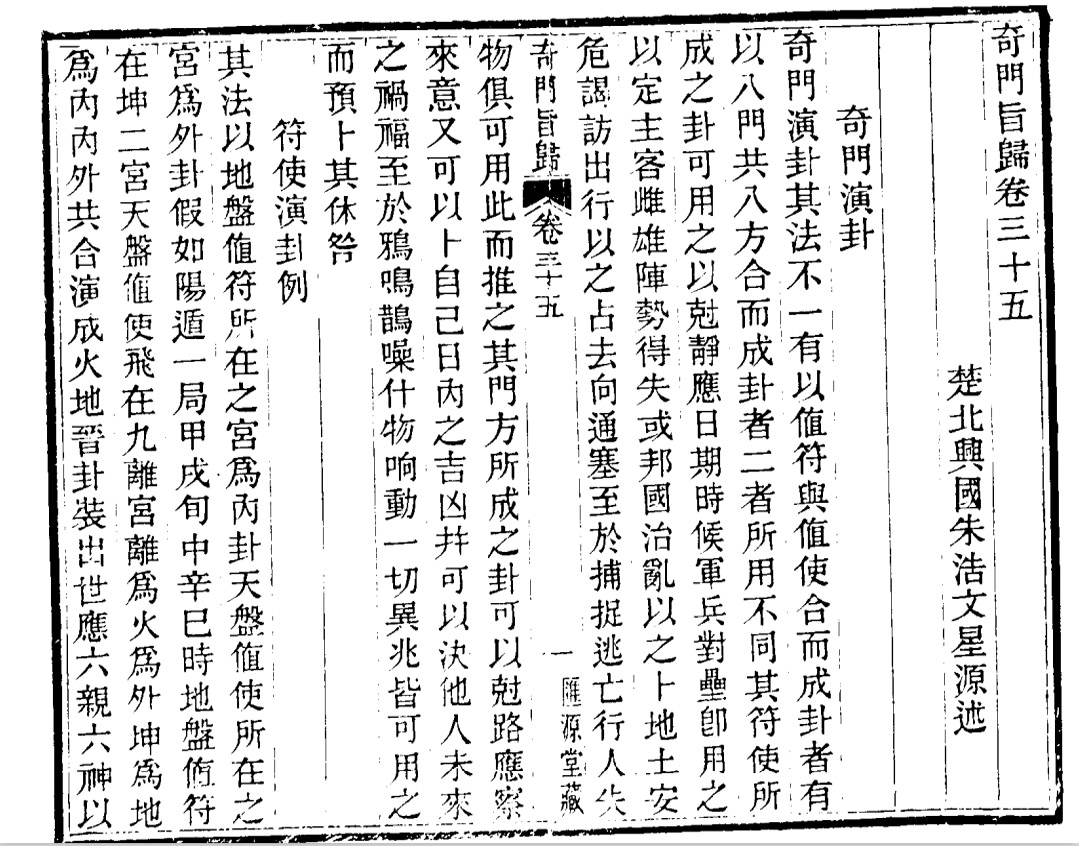 奇門旨歸卷三十五
楚北興國朱浩文星源述
奇門演卦
奇門演卦其法不一有以值符與值使合而成卦者有
以八門共八方合而成卦者二者所用不同其符使所
成之卦可用之以尅靜應日期時候軍兵對壘卽用之
以定主客雌雄陣勢得失或邦國治亂以之卜地土安
危謁訪出行以之占去向通塞至於捕捉逃亡行人失
奇門旨歸 卷三十五 一 匯源堂藏
物俱可用此而推之其門方所成之卦可以尅路應察
來意又可以卜自己日內之吉凶幷可以決他人未來
之禍福至於鴉鳴鵲噪什物响動一切異兆皆可用之
而預卜其休咎
符使演卦例
其法以地盤值符所在之宮爲內卦天盤值使所在之
宮爲外卦假如陽遁一局甲戌旬中辛巳時地盤值符
在坤二宮天盤値使飛在九離宮離爲火爲外坤爲地
爲內內外共合演成火地晉卦裝出世應六親六神以